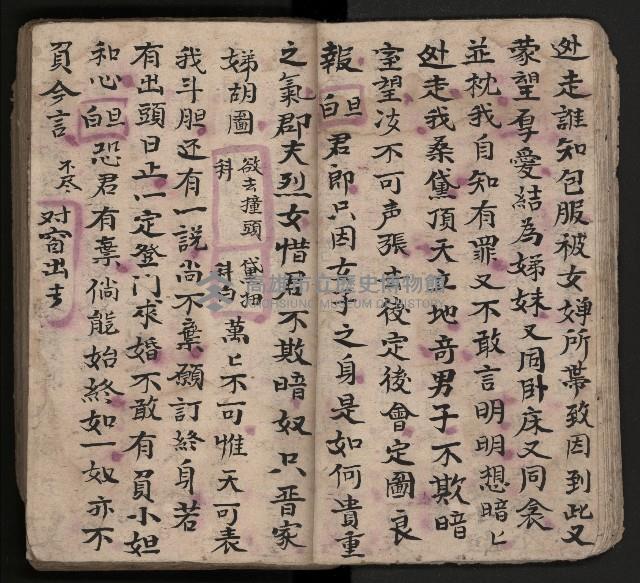 处走誰知包服被女婢所帶致因到此又
蒙望厚愛結為娣妹又同卧床又同衾
並枕我自知有罪又不敢言明明想暗〻
处走我桑黛頂天立地奇男子不欺暗
室望汝不可声張去後定後會定圖良
報 旦白 君郎只因女子之身是如何貴重
之氣郡夫烈女惜君不欺暗奴只晋家
娣胡圖 欲去撞頭科 黛押科白 萬〻不可惟天可表
我斗胆还有一説尚不棄願訂終身若
有出頭日止一定登门求婚不敢有負小姐
和心 旦白 恐君有棄倘能始終如一奴亦不
負今言 不尽 对窗出去
高雄市立歷史博物館
KAOHSIUNG MUSEUM OF HISTORY